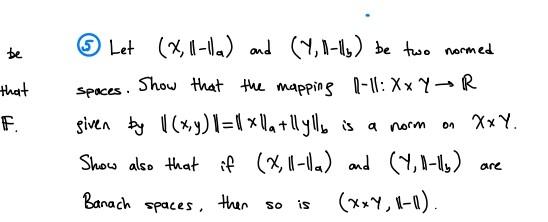 ⑤ Let (X, ‖-‖ₐ) and (Y, ‖-‖_b) be two normed
be
spaces. Show that the mapping ‖-‖: X×Y → ℝ
that
given by ‖(x,y)‖=‖x‖ₐ+‖y‖_b is a norm on X×Y.
F.
Show also that if (X, ‖-‖ₐ) and (Y, ‖-‖_b) are
Banach spaces, then so is (X×Y, ‖-‖).